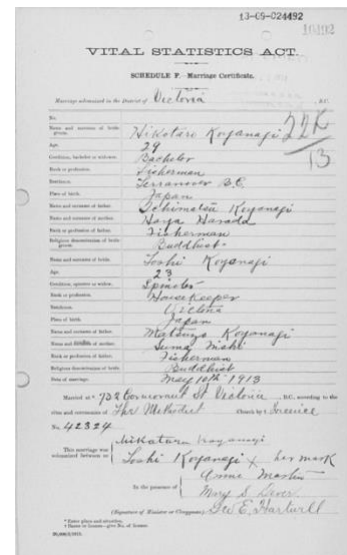 13-09-024492
10492
VITAL STATISTICS ACT.
SCHEDULE F.—Marriage Certificate.
Marriage solemnized in the District of Victoria , B.C.
No.
22K
13
Name and surname of bridegroom. Hikotaro Koyanagi
Age. 29
Condition, bachelor or widower. Bachelor
Rank or profession. Fisherman
Residence. Terranova B.C.
Place of birth. Japan
Name and surname of father. Ichimatsu Koyanagi
Name and surname of mother. Haya Harada
Rank or profession of father. Fisherman
Religious denomination of bridegroom. Buddhist
Name and surname of bride. Toshi Koyanagi
Age. 23
Condition, spinster or widow. Spinster
Rank or profession. Housekeeper
Residence. Victoria
Place of birth. Japan
Name and surname of father. Koyanagi
Name and surname of mother. Suma Nishi
Rank or profession of father. Fisherman
Religious denomination of bride. Buddhist
Date of marriage. May 10th 1913
Married at * 732 Cormorant St Victoria , B.C., according to the
rites and ceremonies of The Methodist Church by † licence
No. 42324
This marriage was solemnized between us
Koyanagi
Toshi Koyanagi X her mark
In the presence of
Annie Martin
Mary S
(Signature of Minister or Clergyman) Geo E. Hartwell
* Enter place and situation.
† Banns or license—give No. of license.